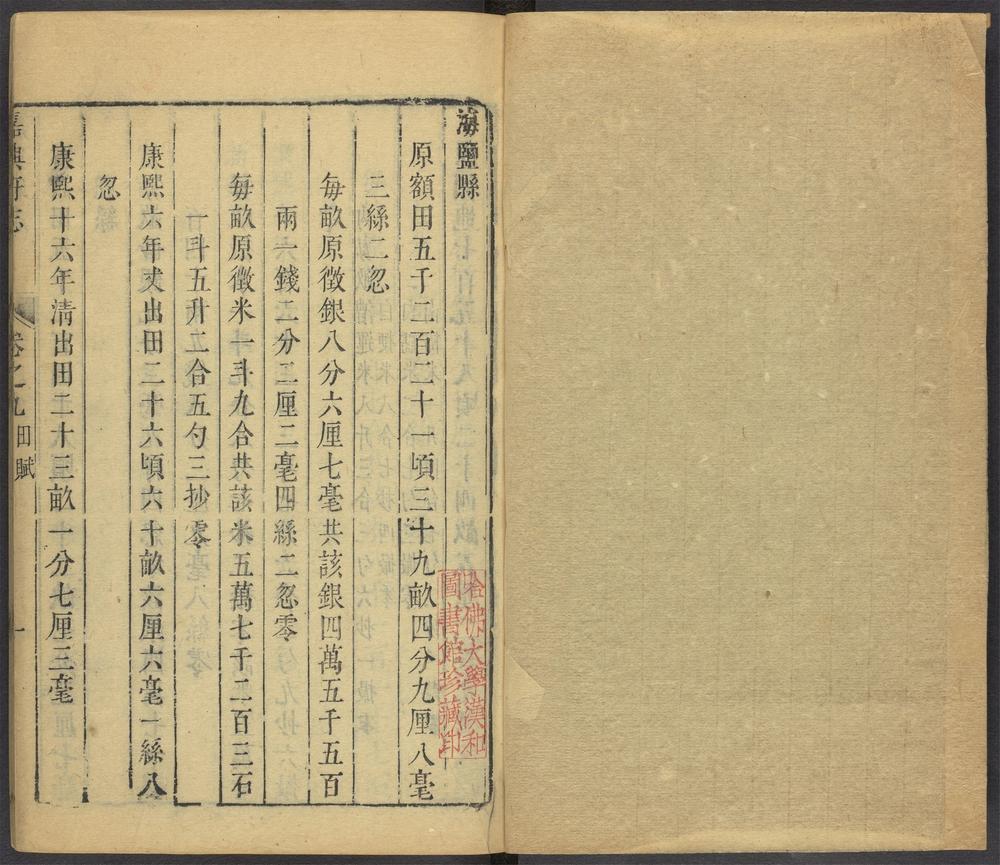 海鹽縣
原額田五千二百二十一頃三十九畝四分九厘八毫
三絲二忽
每畝原徵銀八分六厘七毫共該銀四萬五千五百
兩一錢二分二厘二毫四絲二忽零
每畝原徵米一斗九合共該米五萬七千二百三石
斗五升二合五勺三抄零
康熙六年丈出田三十六頃六十畝六厘六毫一絲八
忽
康熙十六年清出田二十三畝一分七厘三毫
嘉興府志
卷之九
田賦
一
哈佛大學漢和
圖書館珍藏印